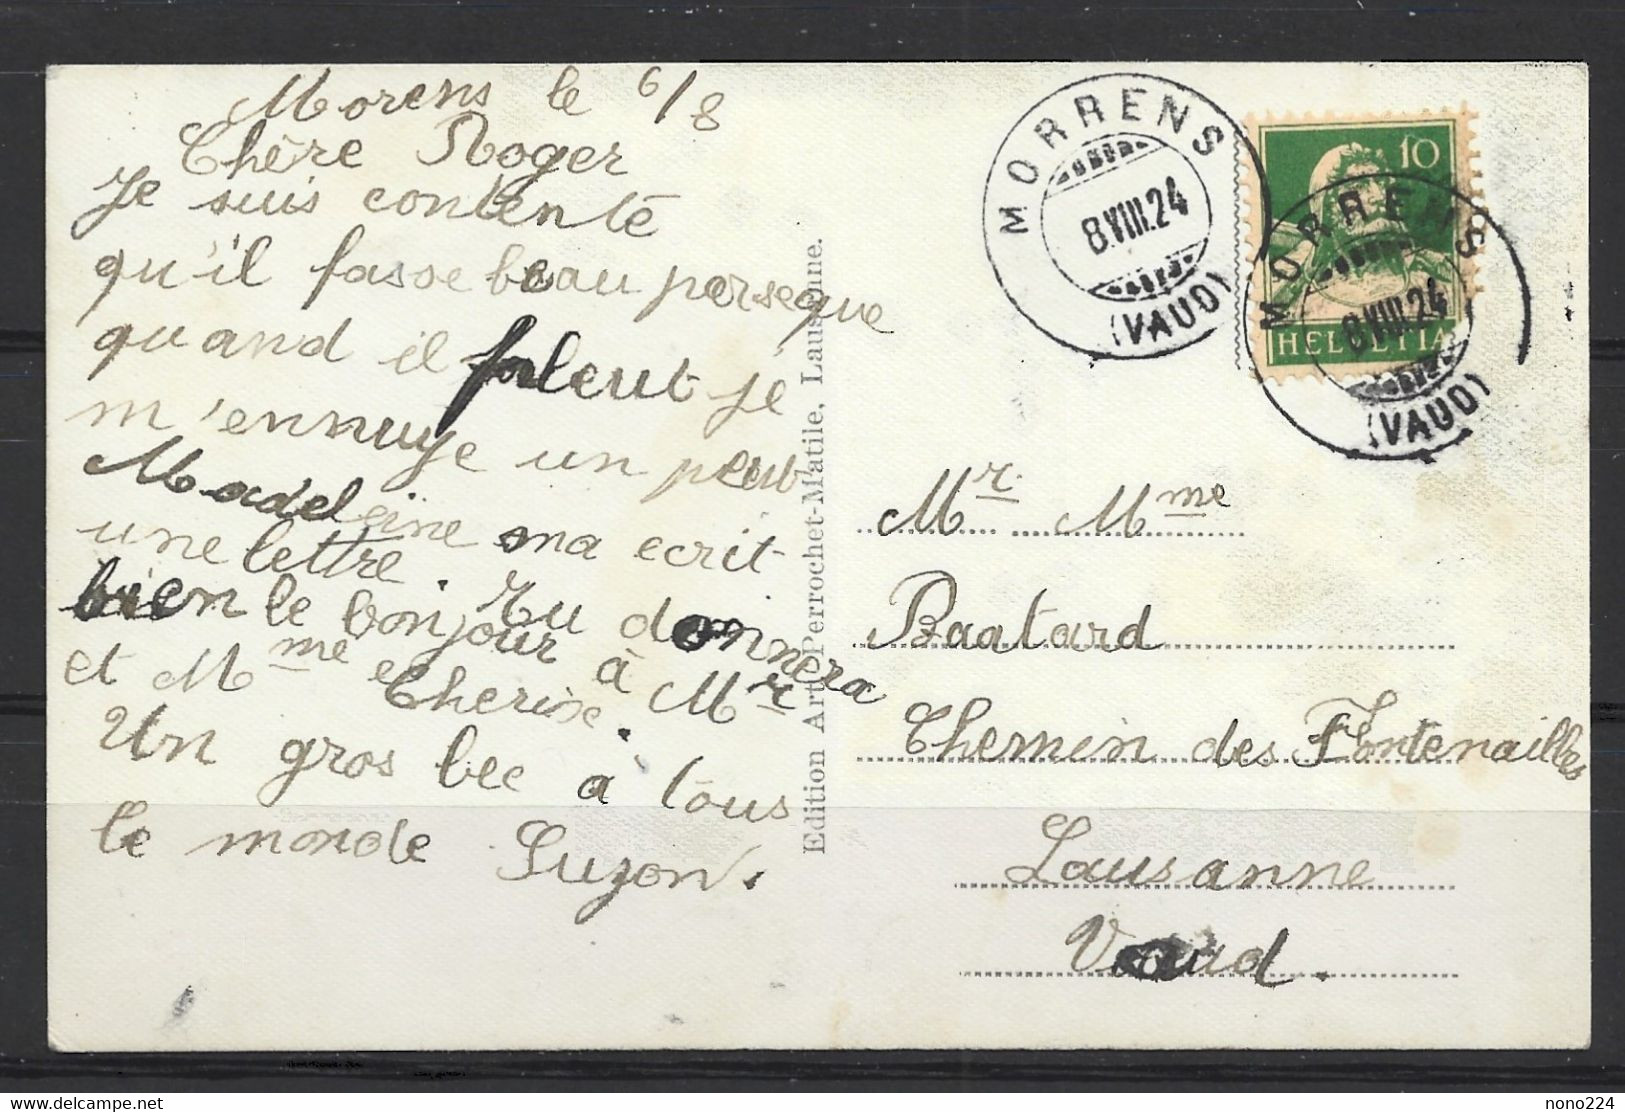 Morens le 6/8
Chère Roger
Je suis contente
qu'il fasse beau parseque
quand il pleut je
m'ennuye un peut
Madeleine ma ecrit
une lettre. Tu donnera
bien le bonjour à Mr
et Mme Cherix.
Un gros bec à tous
le monde Suzon.
Edition Art. Perrochet-Matile, Lausanne.
MORRENS
8.VIII.24
(VAUD)
10
HELVETIA
MORRENS
8.VIII.24
(VAUD)
Mr. Mme
Baatard
Chemin des Fontenailles
Lausanne
Vaud.
www.delcampe.net
nono224